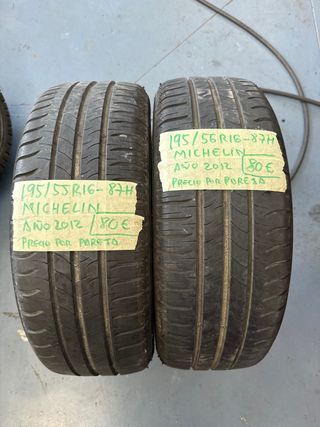 195/55R16-87H
MICHELIN
AÑO 2012 80€
PRECIO POR PAREJA
195/55R16-87H
MICHELIN
AÑO 2012 80€
PRECIO POR PAREJA